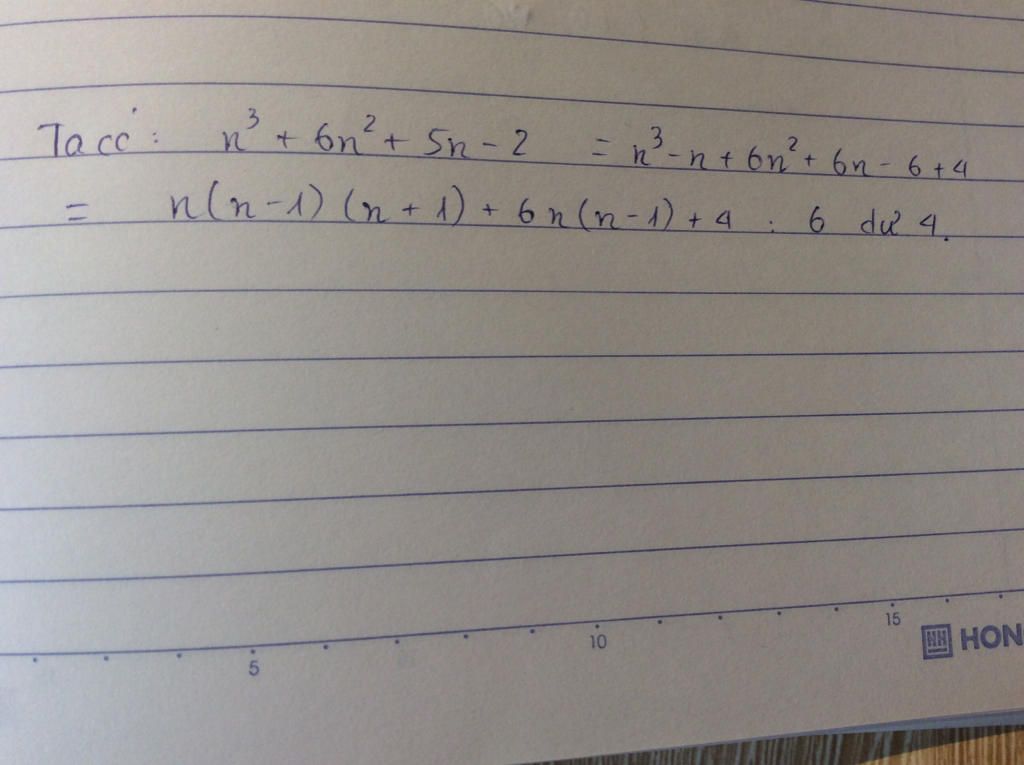 Ta có : n³ + 6n² + 5n - 2 = n³ - n + 6n² + 6n - 6 + 4
= n(n-1)(n+1) + 6n(n-1) + 4 : 6 dư 4.
5 10 15
HH HON